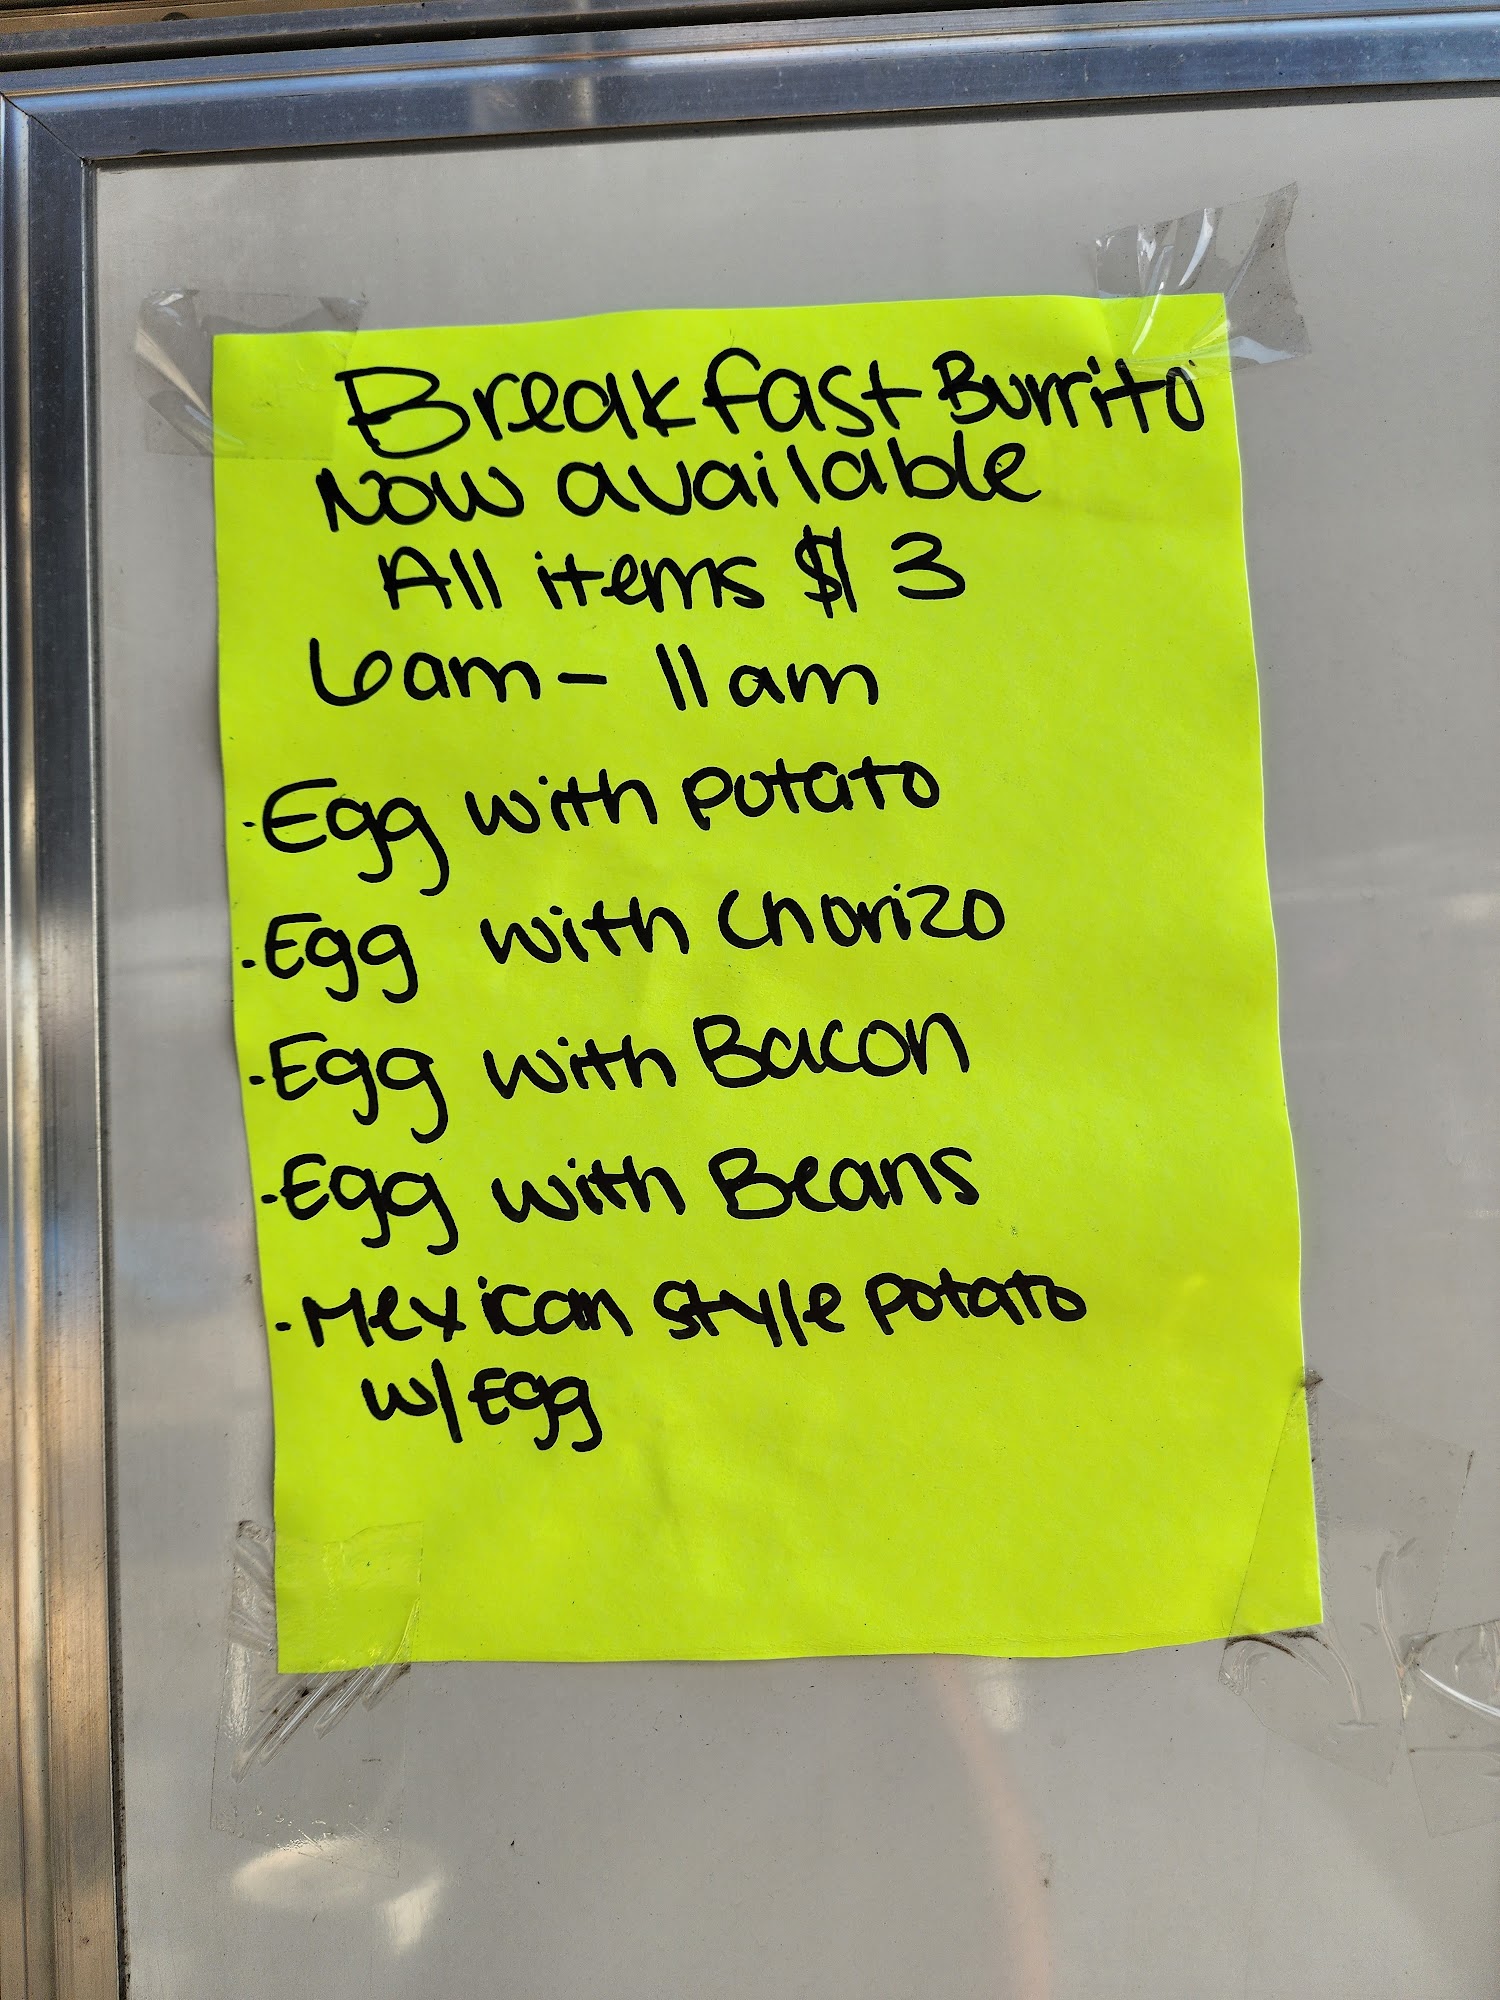 Breakfast Burrito
Now available
All items $ 3
6am - 11am
·Egg with potato
·Egg with Chorizo
·Egg with Bacon
·Egg with Beans
·Mexican style potato
w/Egg